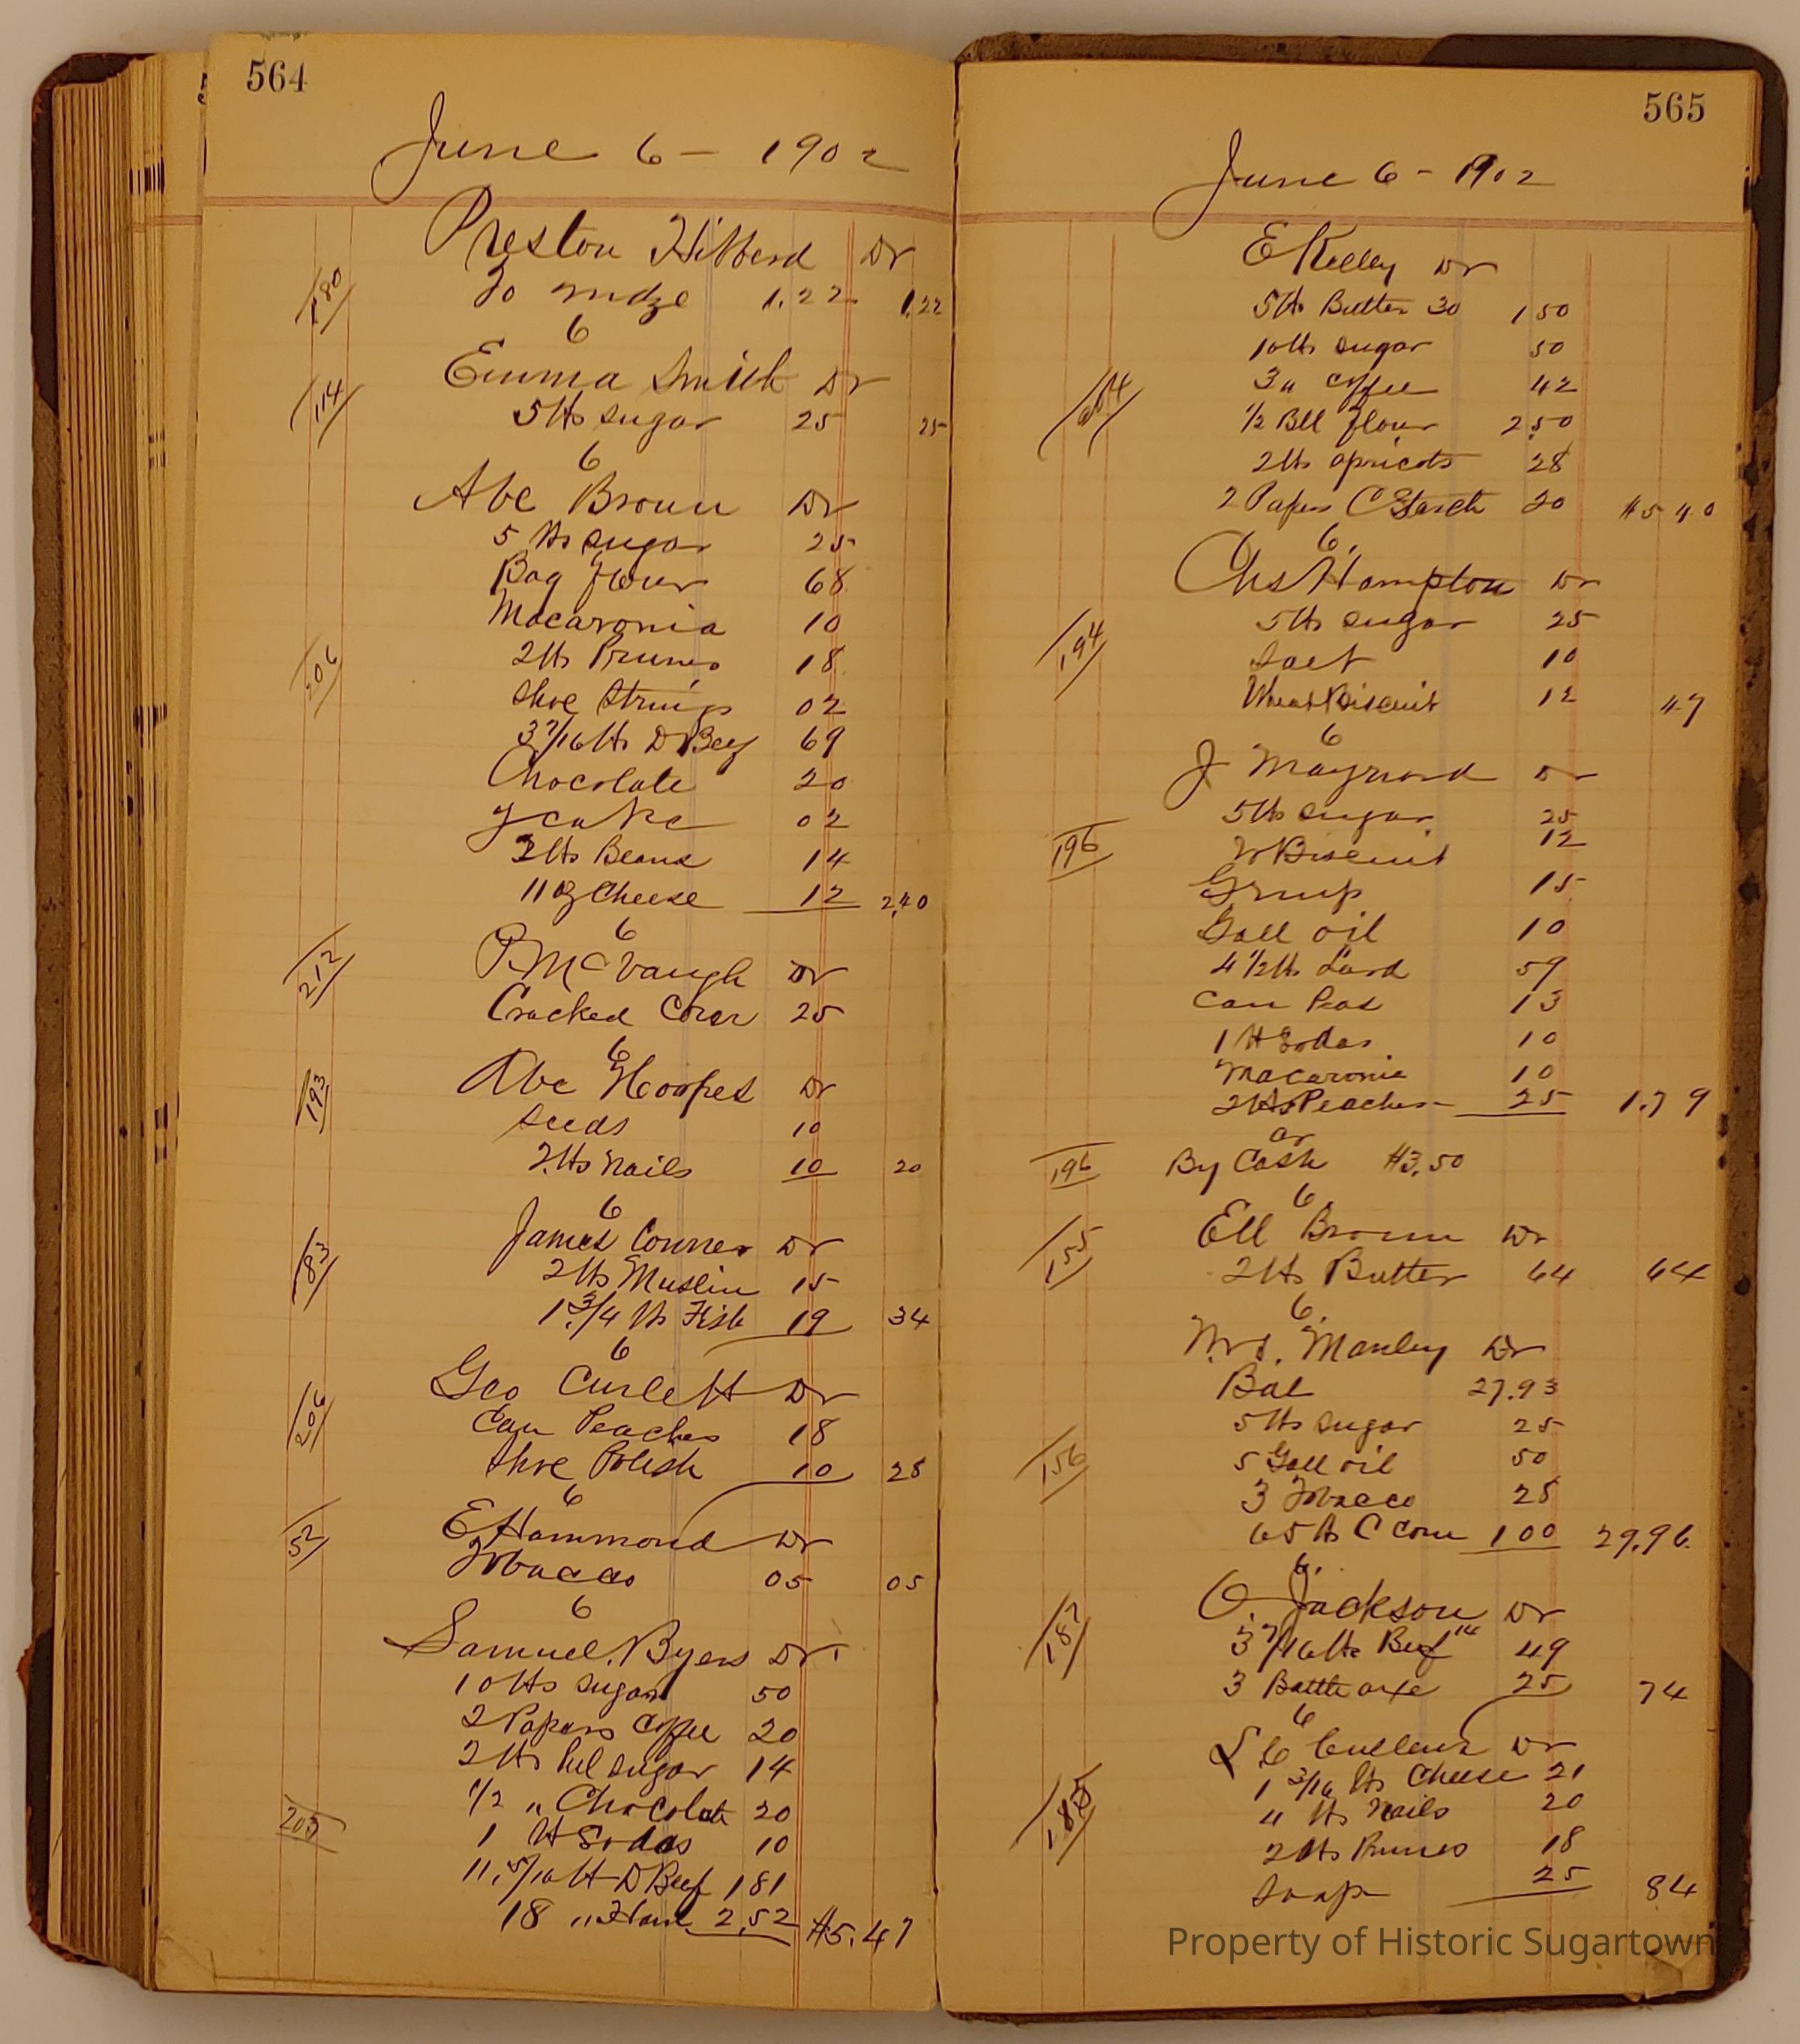 564
June 6 - 1902
Preston Hibberd Dr
180 To mdze 1.22 1.22
6
Emma Smith Dr
114 5 lbs sugar 25 25
6
Abe Brown Dr
5 lbs sugar 25
Bag flour 68
Macaronia 10
206 2 lbs Prunes 18
Shoe Strings 02
3 7/16 lbs D Beef 69
Chocolate 20
Y cake 02
2 lbs Beans 14
11 oz Cheese 12 2,40
6
212 P. McVaugh Dr
Cracked Corn 25
6
193 Abe Hoopes Dr
Seeds 10
2 lbs nails 10 20
6
James Conner Dr
83 2 lbs Muslin 15
1 3/4 lbs Fish 19 34
6
Geo Curlett Dr
206 Can Peaches 18
Shoe Polish 10 28
6
52 E Hammond Dr
Tobacco 05 05
6
Samuel Byers Dr
10 lbs sugar 50
2 Papers Coffee 20
2 lbs Pul sugar 14
1/2 " Chocolate 20
205 1 lb Sodas 10
11 5/16 lb D Beef 181
18 " Ham 2,52 $5.47
565
June 6 - 1902
E Kelley Dr
5 lbs Butter 30 150
10 lbs sugar 50
204 3 " coffee 42
1/2 Bbl flour 2.50
2 lbs apricots 28
2 Papers C Starch 20 $5 40
6.
Chs Hampton Dr
194 5 lbs sugar 25
Salt 10
Wheat Biscuit 12 47
6
J Maynard Dr
5 lbs sugar 25
196 W Biscuit 12
Syrup 15
Gall oil 10
4 1/2 lbs Lard 59
Can Peas 13
1 lb Sodas 10
Macaronia 10
2 lbs Peaches 25 1.79
cr
196 By Cash $3.50
6
155 Ell Brown Dr
2 lbs Butter 64 64
6.
Mrs. Manley Dr
Bal 27.93
5 lbs sugar 25
156 5 Gall oil 50
3 Tobacco 28
65 lbs C Corn 100 29,96
6.
187 O. Jackson Dr
3 7/16 lbs Beef 14 49
3 Battle axe 25 74
6
L C Cullens Dr
1 3/16 lbs Cheese 21
185 4 lbs nails 20
2 lbs Prunes 18
Soap 25 84
Property of Historic Sugartown